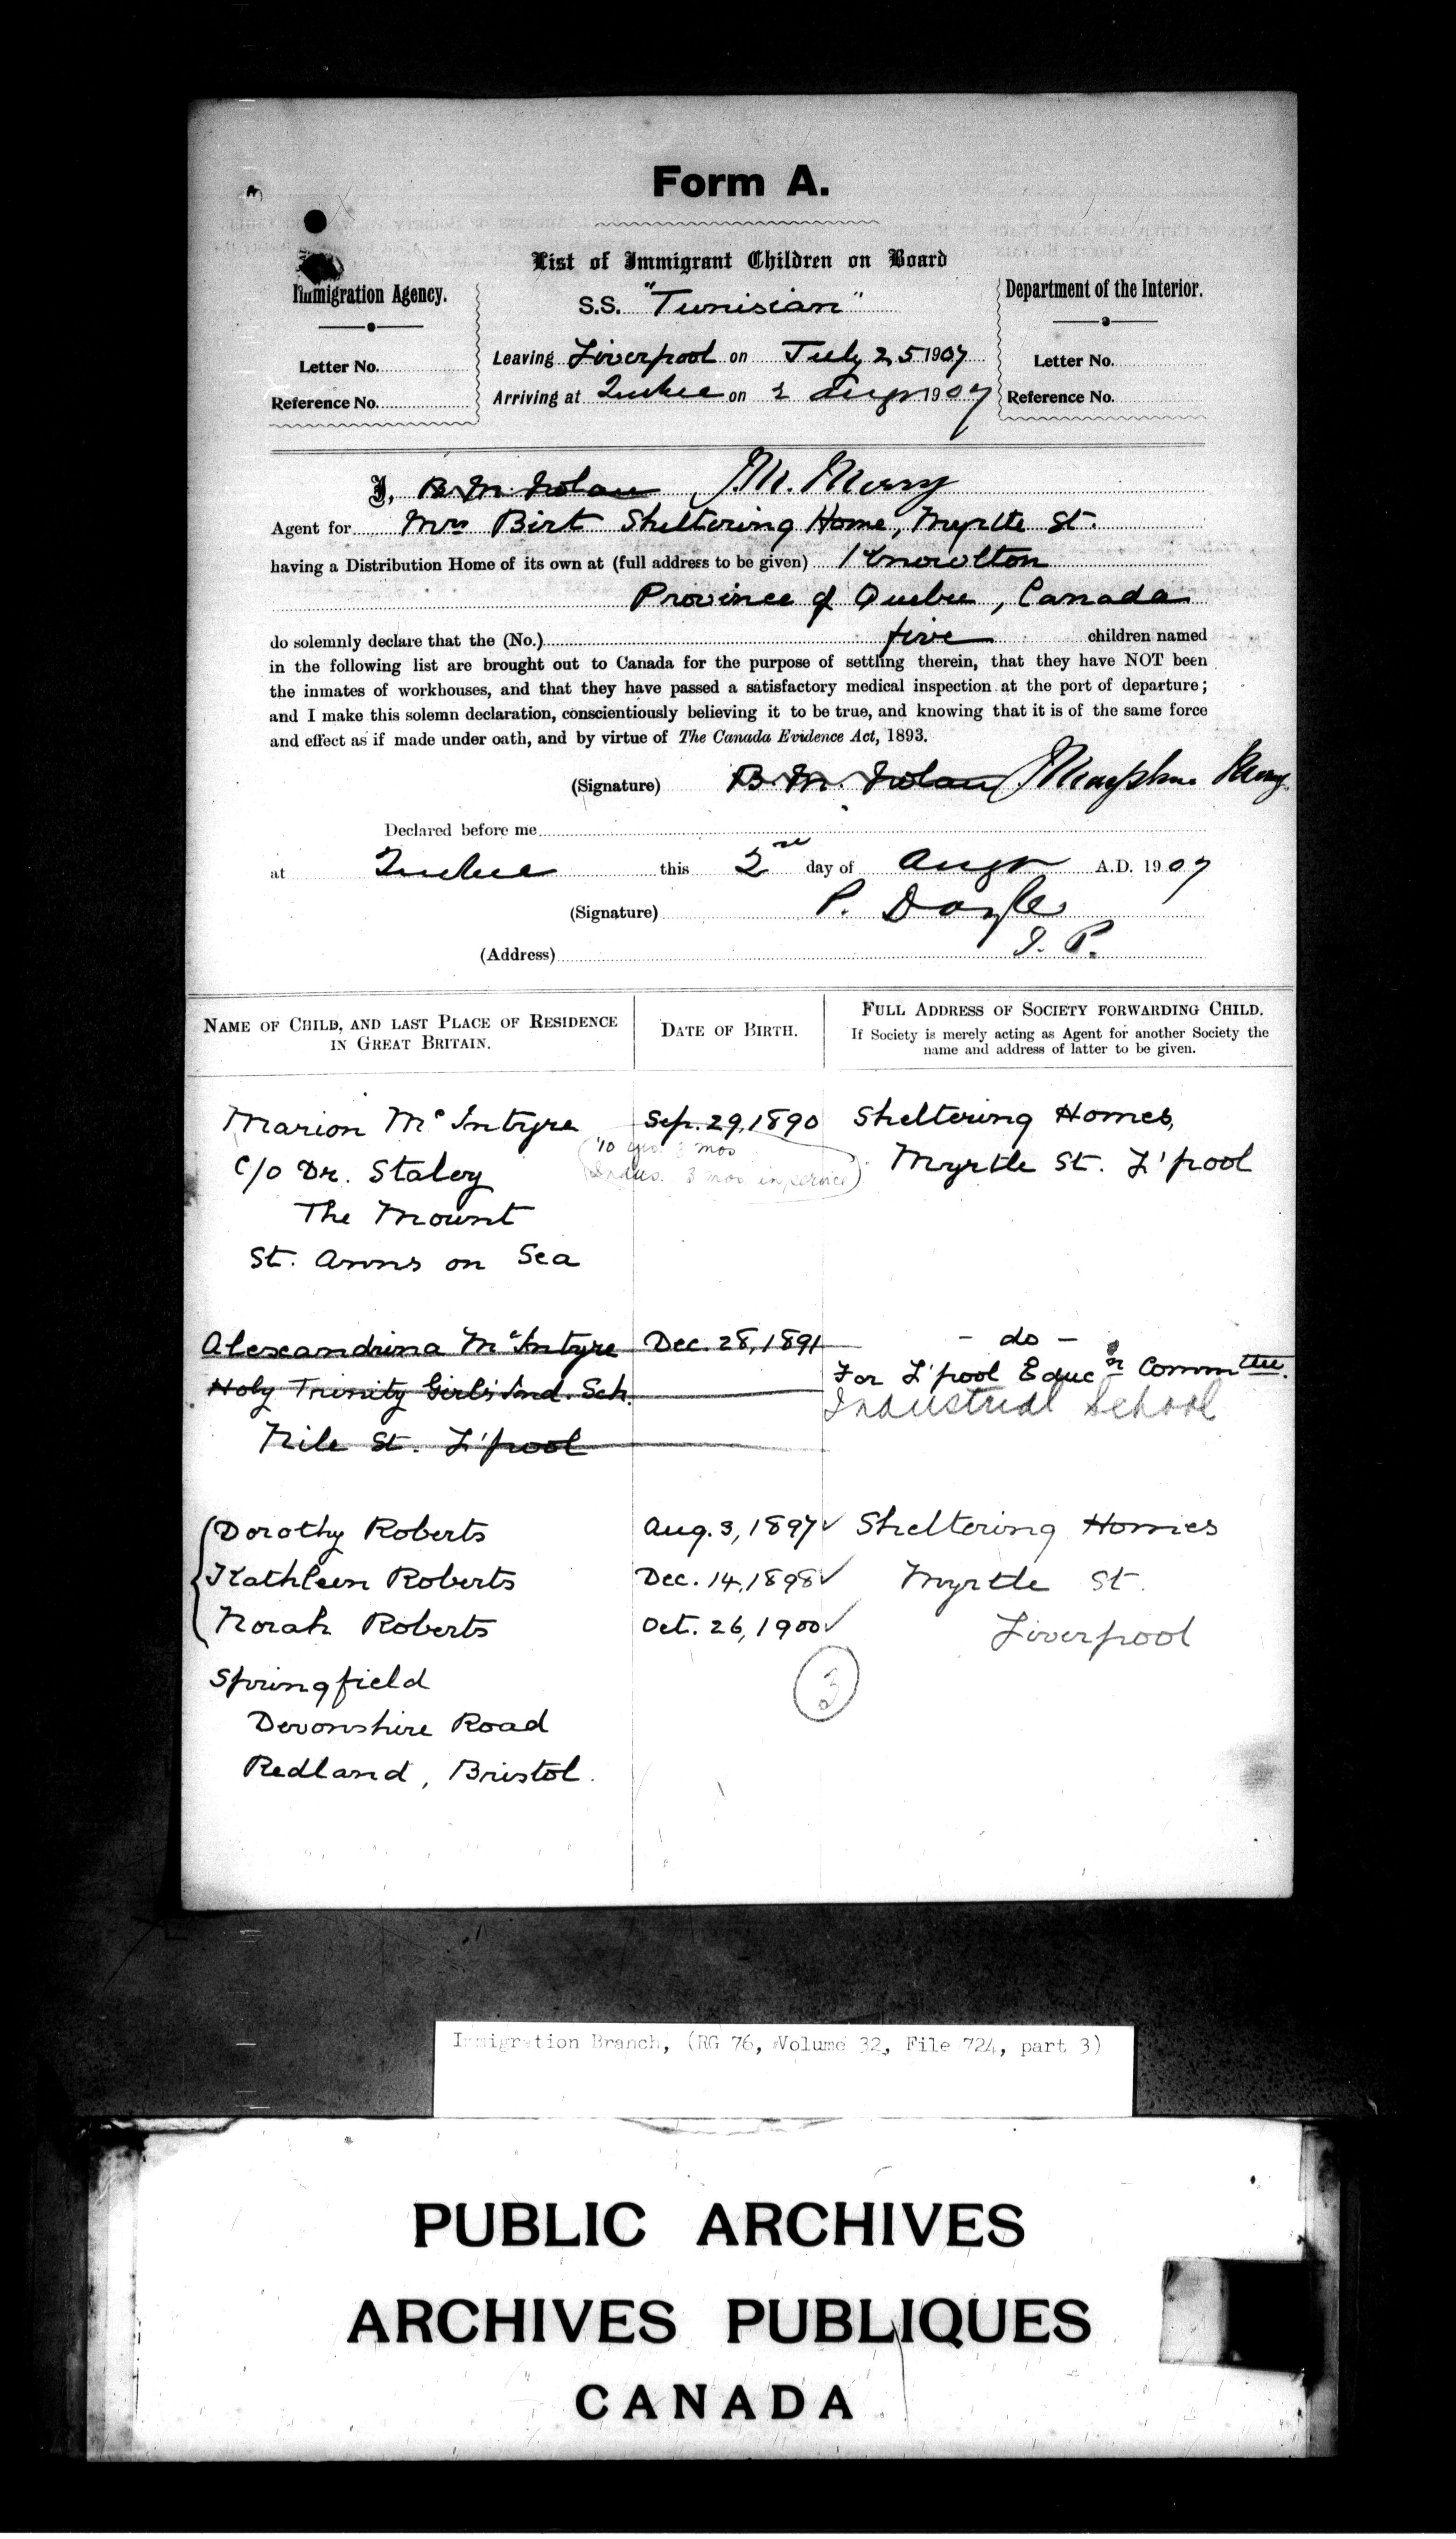 Form A.
List of Immigrant Children on Board
S.S. "Tunisian"
Leaving Liverpool on July 25 1907
Arriving at Quebec on 2 Augt 1907
Immigration Agency.
Letter No.
Reference No.
Department of the Interior.
Letter No.
Reference No.
I, B. M. Nolan J. M. Merry
Agent for Mrs Birt Sheltering Home, Myrtle St.
having a Distribution Home of its own at (full address to be given) Knowlton
Province of Quebec, Canada
do solemnly declare that the (No.) five children named
in the following list are brought out to Canada for the purpose of settling therein, that they have NOT been
the inmates of workhouses, and that they have passed a satisfactory medical inspection at the port of departure;
and I make this solemn declaration, conscientiously believing it to be true, and knowing that it is of the same force
and effect as if made under oath, and by virtue of The Canada Evidence Act, 1893.
(Signature) B. M. Nolan Merry
Declared before me
at Quebec this 2nd day of Augt A.D. 1907
(Signature) P. Doyle
J. P.
(Address)
NAME OF CHILD, AND LAST PLACE OF RESIDENCE
IN GREAT BRITAIN.
DATE OF BIRTH.
FULL ADDRESS OF SOCIETY FORWARDING CHILD.
If Society is merely acting as Agent for another Society the
name and address of latter to be given.
Marion McIntyre Sep. 29, 1890 Sheltering Homes,
10 yrs. 3 mos
C/o Dr. Staley Myrtle St. L'pool
Indus. 3 mos in service
The Mount
St. Anns on Sea
Alexandrina McIntyre Dec. 28, 1891 - do -
Holy Trinity Girls' Ind. Sch. For L'pool Educn Committee.
Industrial School
Nile St. L'pool
Dorothy Roberts Aug. 3, 1897 ✓ Sheltering Homes
Kathleen Roberts Dec. 14, 1898 ✓ Myrtle St.
Norah Roberts Oct. 26, 1900 ✓ Liverpool
Springfield 3
Devonshire Road
Redland, Bristol.
Immigration Branch, (RG 76, Volume 32, File 724, part 3)
PUBLIC ARCHIVES
ARCHIVES PUBLIQUES
CANADA